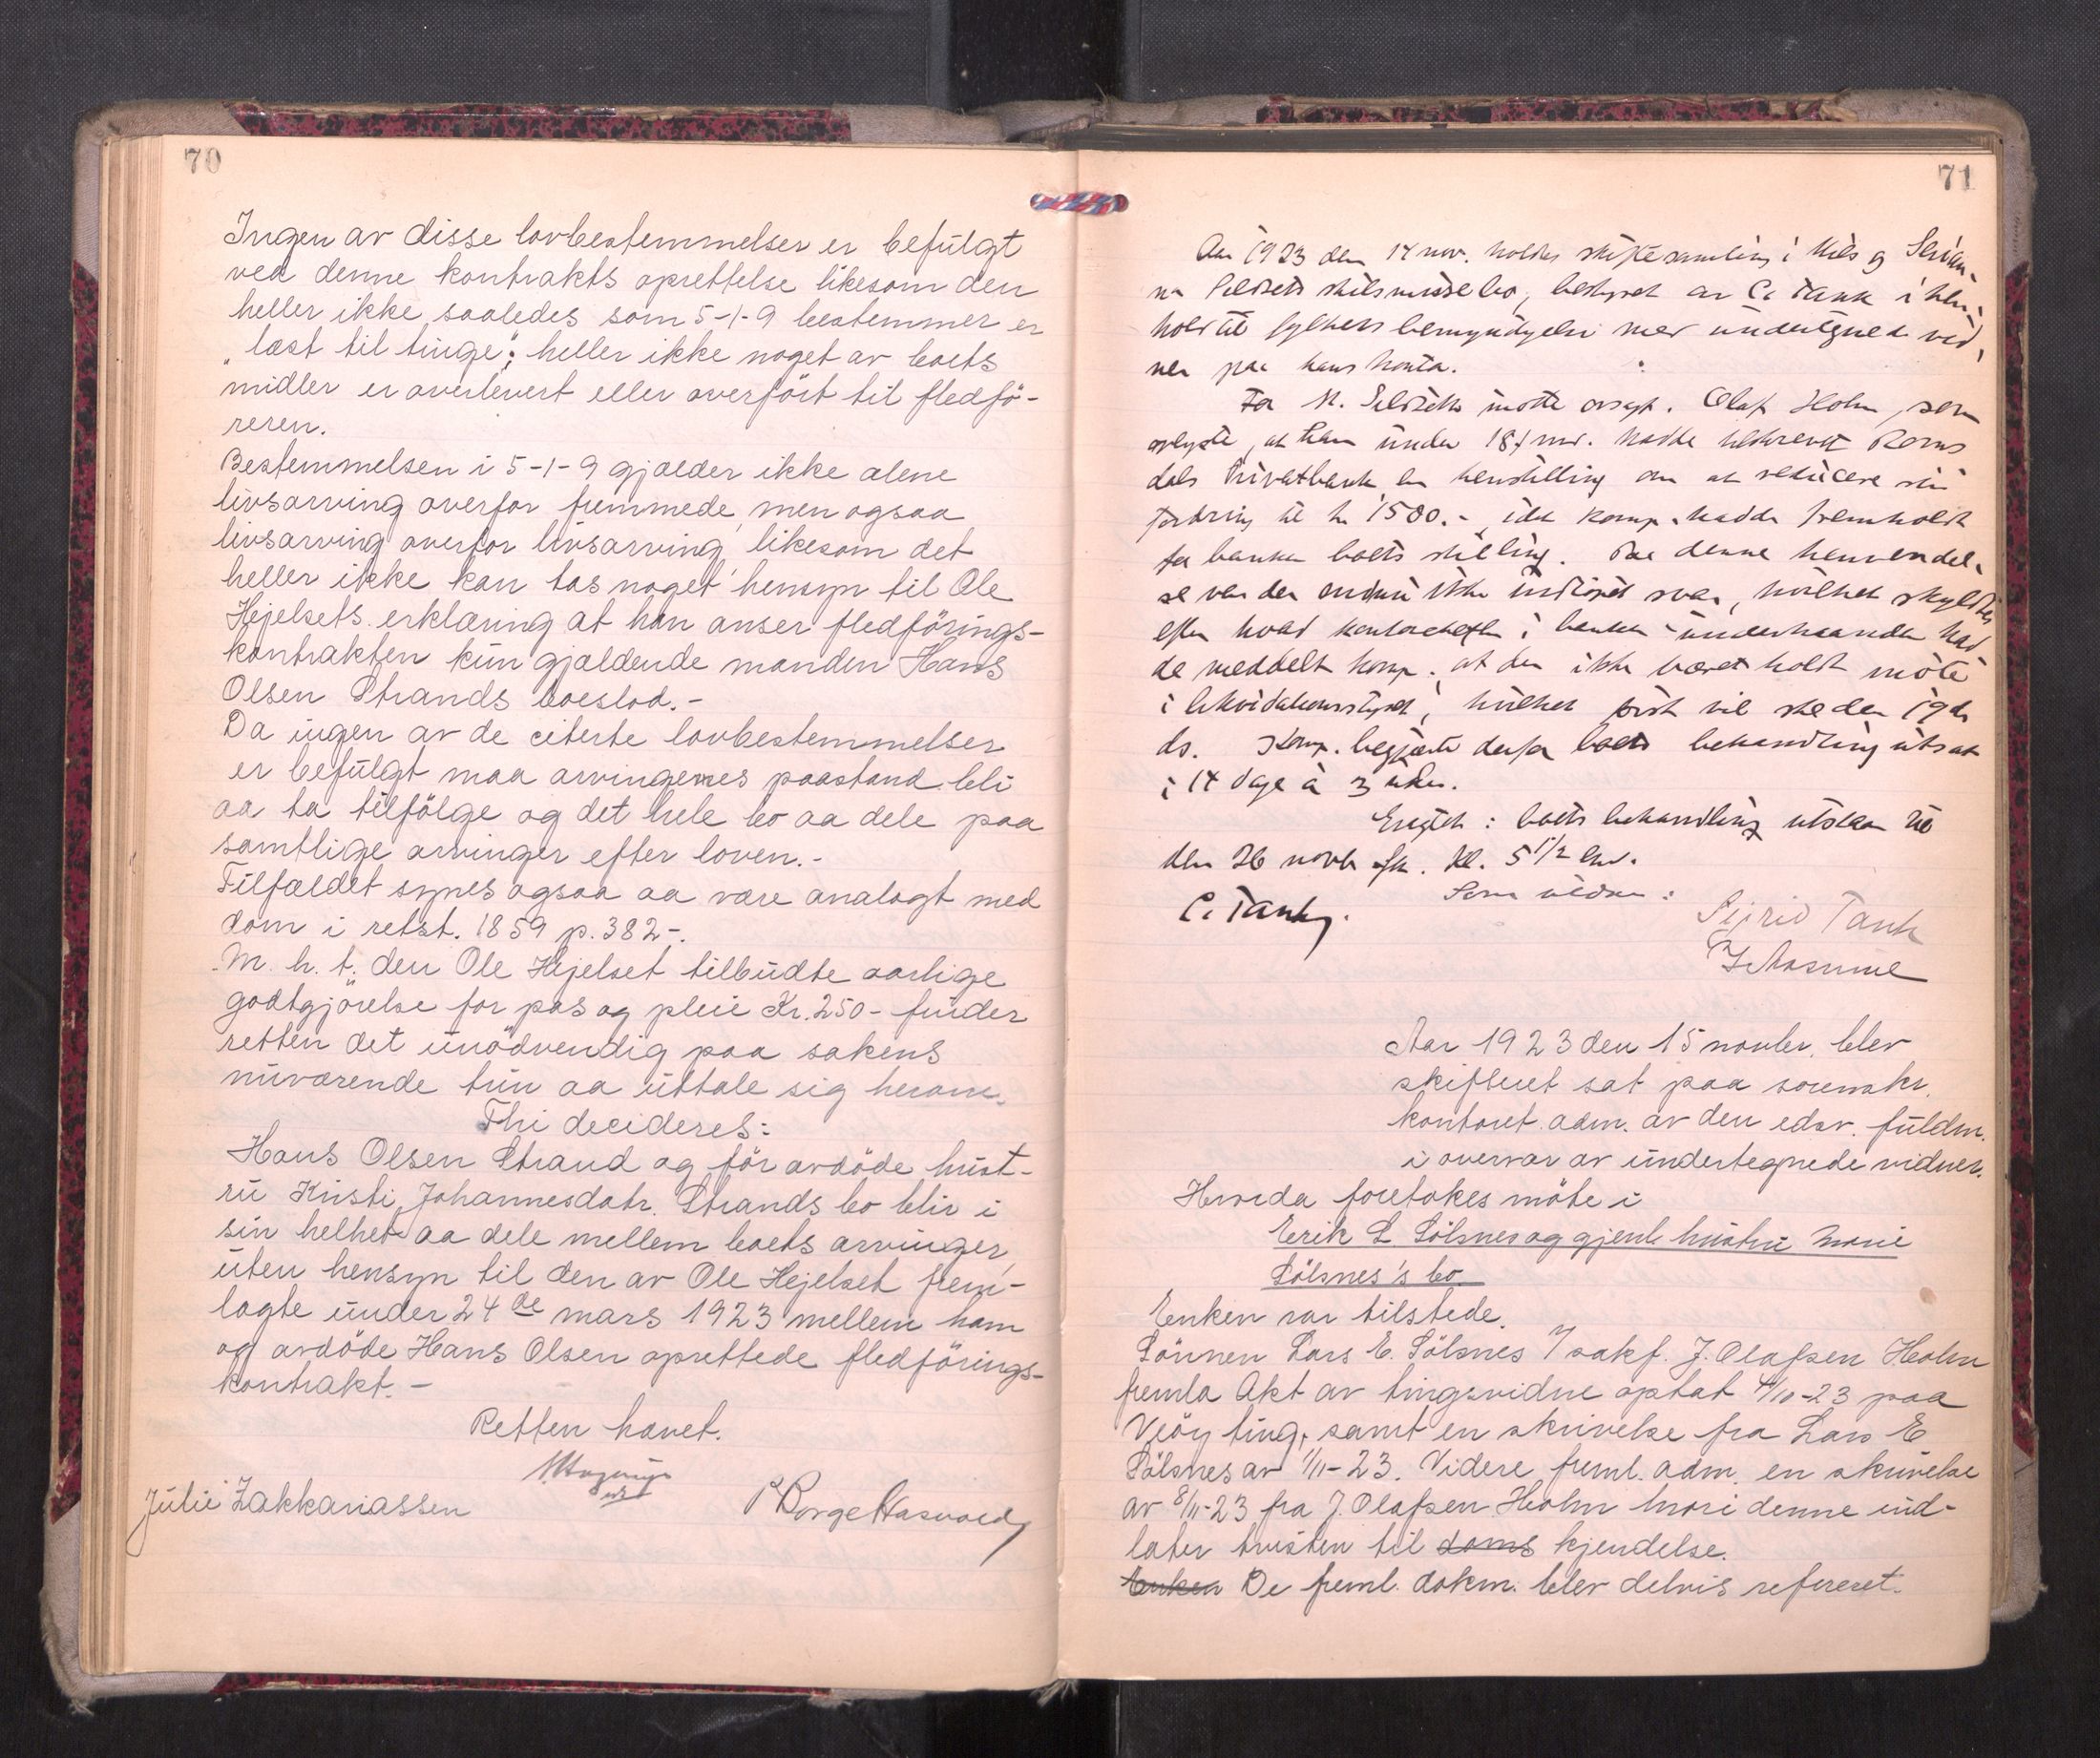 70
Ingen av disse lovbestemmelser er befulgt
ved denne kontrakts oprettelse likesom den
heller ikke saaledes som 5-1-9 bestemmer er
"læst til tinge"; heller ikke noget av boets
midler er overlevert eller overført til fledfø-
reren.
Bestemmelsen i 5-1-9 gjælder ikke alene
livsarving overfor fremmede, men ogsaa
livsarving overfor livsarving, likesom det
heller ikke kan tas noget hensyn til Ole
Hejelsets erklæring at han anser fledførings-
kontrakten kun gjældende manden Hans
Olsen Strands boeslod.-
Da ingen av de citerte lovbestemmelser
er befulgt maa arvingernes paastand bli
aa ta tilfølge og det hele bo aa dele paa
samtlige arvinger efter loven.-
Tilfældet synes ogsaa aa være analogt med
dom i retst. 1859 p. 382-.
M. h. t. den Ole Hejelset tilbudte aarlige
godtgjørelse for pas og pleie Kr. 250- finder
retten det unødvendig paa sakens
nuværende trin aa uttale sig herom.
Thi decideres:
Hans Olsen Strand og før avdøde hust-
ru Kristi Johannesdatr. Strands bo blir i
sin helhet aa dele mellem boets arvinger,
uten hensyn til den av Ole Hejelset frem-
lagte under 24de mars 1923 mellem ham
og avdøde Hans Olsen oprettede fledførings-
kontrakt.-
Retten hævet.
Julie Zakkariassen
P Borge Hasvold
71
Aar 1923 den 14 nov. holdes skiftesamling i Nils og
skilsmissebo, bestyret av C. Tank i hen-
hold til fylkets bemyndigelse med undertegnede vid-
ner paa hans kontor.
For N. møtte orsagf. Olaf Holm, som
oplyste, at han under 18/ hadde tilskrevet Roms
dals Privatbank en henstilling om at reducere sin
fordring til kr 1500.-, idet komp. hadde fremholdt
for banken boets stilling. Paa denne henvendel-
se var der endnu ikke indløpet svar, hvilket skyldtes
efter hvad kontorchefen i banken underhaanden had
de meddelt komp. at der ikke været holdt møte
i likvidationsstyret, hvilket først vil ske den 19de
ds. Komp. begjærte derfor boets behandling utsat
i 14 dage à 3 uker.
boets behandling utstaar til
den 26 novb. kl. 5 1/2 em.
Som vidner:
C. Tank.
Sigrid Tank
Aar 1923 den 15 novber. blev
skifteret sat paa sorenskr.
kontoret adm. av den edsv. fuldm.
i overvær av undertegnede vidner.
Hvorda foretakes møte i
Erik L Sølsnes og gjenl. hustru Marie
Sølsnes's bo.
Enken var tilstede.
Sønnen Lars E. Sølsnes v/ sakf. J. Olafsen Holm
fremla Akt av tingsvidne optat 4/10-23 paa
Veøy ting, samt en skrivelse fra Lars E
Sølsnes av 1/11-23. Videre freml. adm. en skrivelse
av 8/11-23 fra J. Olafsen Holm hvori denne ind-
later tvisten til doms kjendelse.
Enken De freml. dokm. blev delvis referert.